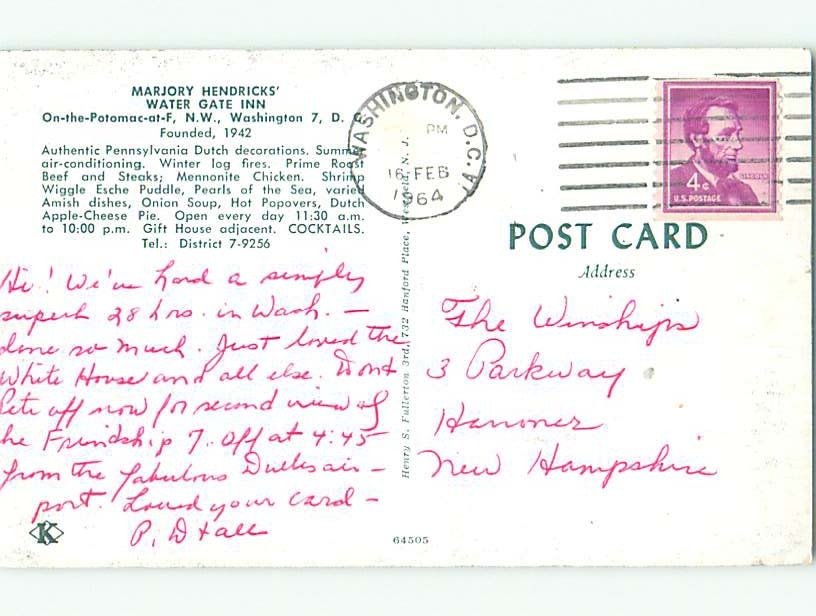 MARJORY HENDRICKS'
WATER GATE INN
On-the-Potomac-at-F, N.W., Washington 7, D. C.
Founded, 1942
Authentic Pennsylvania Dutch decorations. Summer
air-conditioning. Winter log fires. Prime Roast
Beef and Steaks; Mennonite Chicken. Shrimp
Wiggle Esche Puddle, Pearls of the Sea, varied
Amish dishes, Onion Soup, Hot Popovers, Dutch
Apple-Cheese Pie. Open every day 11:30 a.m.
to 10:00 p.m. Gift House adjacent. COCKTAILS.
Tel.: District 7-9256
Hi! We've had a simply
superb 28 hrs. in Wash. —
done so much. Just loved the
White House and all else. Dont
Pete off now for second view of
he Friendship 7. Off at 4:45
from the fabulous Dulles air-
port. Loved your card -
P. D + all
K
Henry S. Fullerton 3rd, 732 Hanford Place, Westfield, N. J.
64505
WASHINGTON, D.C.
PM
16 FEB
1964
4¢
LINCOLN
U.S. POSTAGE
POST CARD
Address
The Winships
3 Parkway
Hanover
New Hampshire